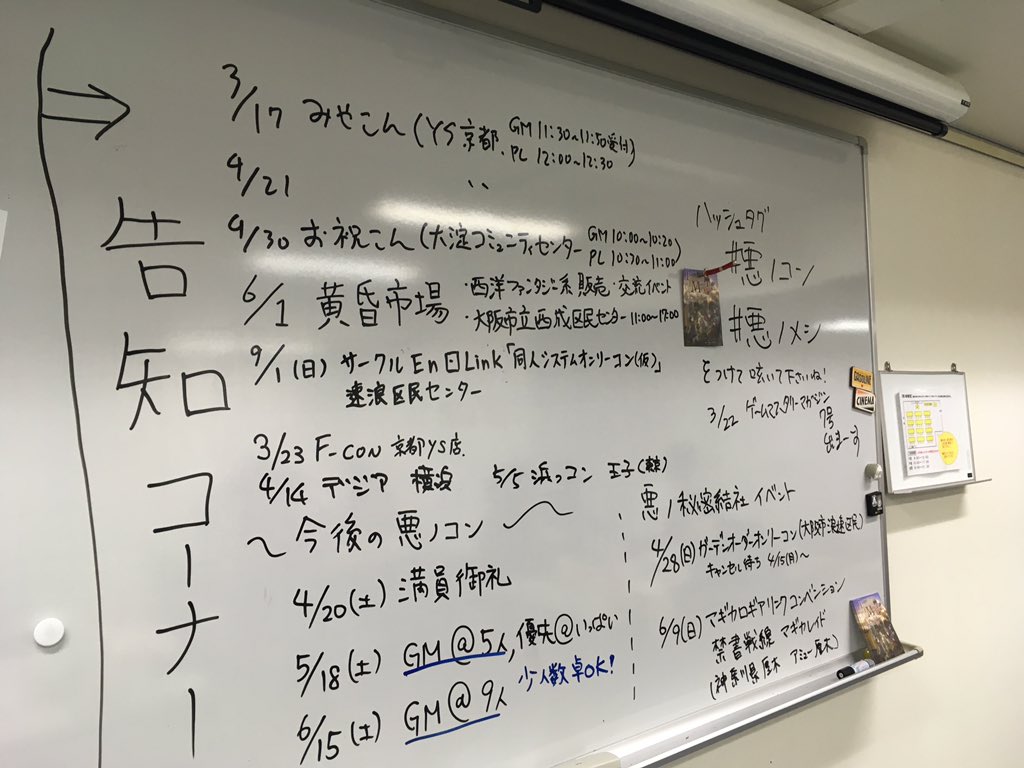 告知コーナー
3/17 みやこん(YS京都、GM 11:30~11:50受付)
PL 12:00~12:30
4/21 〃
4/30 お祝こん(大淀コミュニティセンター GM 10:00~10:20)
PL 10:30~11:00
6/1 黄昏市場 ・西洋ファンタジー系 販売・交流イベント
・大阪市立西成区民センター 11:00~17:00
9/1(日) サークルEn日Link「同人システムオンリーコン(仮)」
速浪区民センター
3/23 F-CON 京都YS店.
4/14 デジア 横浜 5/5 浜っコン 王子(東京)
~今後の悪ノコン~
4/20(土) 満員御礼
5/18(土) GM@5人, 優先@いっぱい
少人数卓OK!
6/15(土) GM@9人
ハッシュタグ
#悪ノコン
#悪ノメシ
をつけて呟いて下さいね!
3/22 ゲームマスタリーマガジン
7号
出まーす
悪ノ秘密結社 イベント
4/28(日) ガーデンオーダーオンリーコン(大阪市浪速区民)
キャンセル待ち 4/15(月)~
6/9(日) マギカロギアリンクコンベンション
禁書戦線 マギカレイド
(神奈川県厚木 アミュー厚木)
GASOLINE
CINEMA